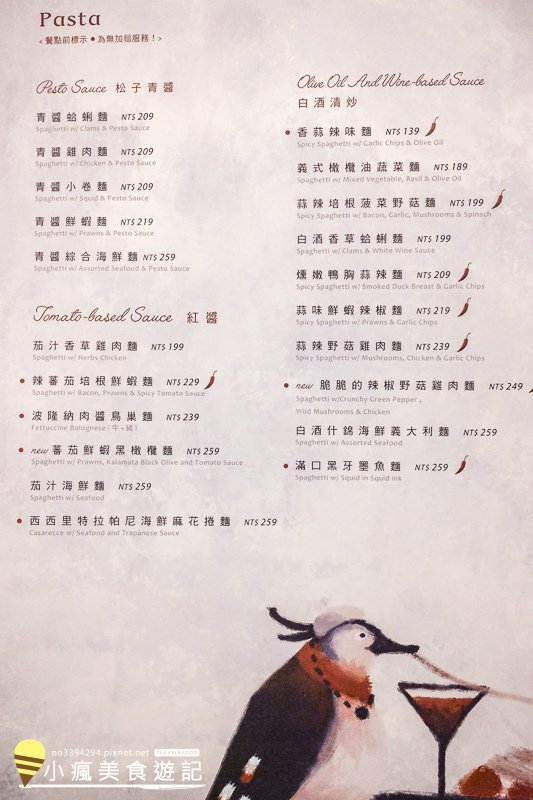 Pasta
<餐點前標示●為無加麵服務!>
Pesto Sauce 松子青醬
青醬蛤蜊麵 NT$ 209
Spaghetti w/ Clams & Pesto Sauce
青醬雞肉麵 NT$ 209
Spaghetti w/ Chicken & Pesto Sauce
青醬小卷麵 NT$ 209
Spaghetti w/ Squid & Pesto Sauce
青醬鮮蝦麵 NT$ 219
Spaghetti w/ Prawns & Pesto Sauce
青醬綜合海鮮麵 NT$ 259
Spaghetti w/ Assorted Seafood & Pesto Sauce
Tomato-based Sauce 紅醬
茄汁香草雞肉麵 NT$ 199
Spaghetti w/ Herbs Chicken
● 辣蕃茄培根鮮蝦麵 NT$ 229
Spaghetti w/ Bacon, Prawns & Spicy Tomato Sauce
● 波隆納肉醬鳥巢麵 NT$ 239
Fettuccine Bolognese (牛+豬)
● new 蕃茄鮮蝦黑橄欖麵 NT$ 259
Spaghetti w/ Prawns, Kalamata Black Olive and Tomato Sauce
茄汁海鮮麵 NT$ 259
Spaghetti w/ Seafood
● 西西里特拉帕尼海鮮麻花捲麵 NT$ 259
Casarecce w/ Seafood and Trapanese Sauce
Olive Oil And Wine-based Sauce
白酒清炒
● 香蒜辣味麵 NT$ 139
Spicy Spaghetti w/ Garlic Chips & Olive Oil
義式橄欖油蔬菜麵 NT$ 189
Spaghetti w/ Mixed Vegetable, Basil & Olive Oil
蒜辣培根菠菜野菇麵 NT$ 199
Spicy Spaghetti w/ Bacon, Garlic, Mushrooms & Spinach
白酒香草蛤蜊麵 NT$ 199
Spaghetti w/ Clams & White Wine Sauce
燻嫩鴨胸蒜辣麵 NT$ 209
Spicy Spaghetti w/ Smoked Duck Breast & Garlic Chips
蒜味鮮蝦辣椒麵 NT$ 219
Spicy Spaghetti w/ Prawns & Garlic Chips
蒜辣野菇雞肉麵 NT$ 239
Spicy Spaghetti w/ Mushrooms, Chicken & Garlic Chips
● new 脆脆的辣椒野菇雞肉麵 NT$ 249
Spaghetti w/Crunchy Green Pepper ,
Wild Mushrooms & Chicken
白酒什錦海鮮義大利麵 NT$ 259
Spaghetti w/ Assorted Seafood
● 滿口黑牙墨魚麵 NT$ 259
Spaghetti w/ Squid in Squid ink
no3394294.pixnet.net TRAVEL&FOOD
小瘋美食遊記